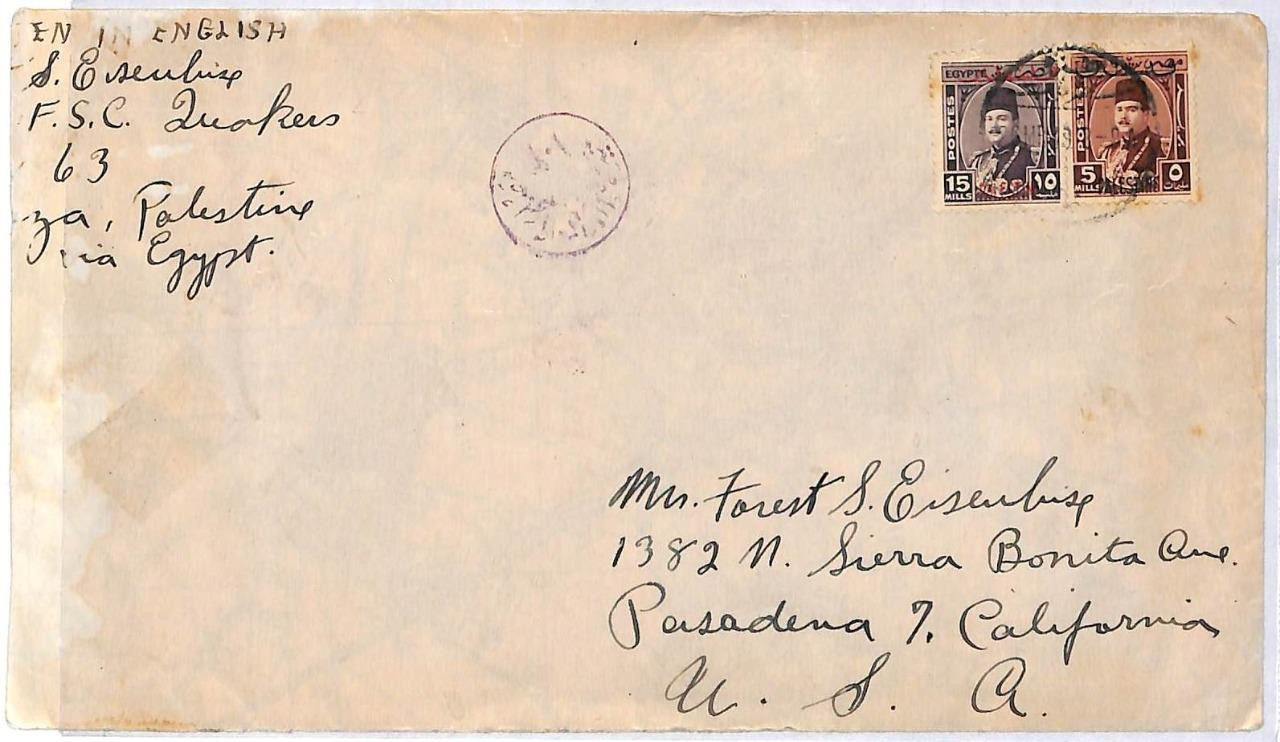 EN IN ENGLISH
S. Eisenbise
F.S.C. Quakers
63
za, Palestine
via Egypt.
EGYPTE
POSTES
15 ١٥
MILLS
POSTES
5 ٥
MILLS
PALESTINE
Mrs. Forest S. Eisenbise
1382 N. Sierra Bonita Ave.
Pasadena 7, California
U. S. A.